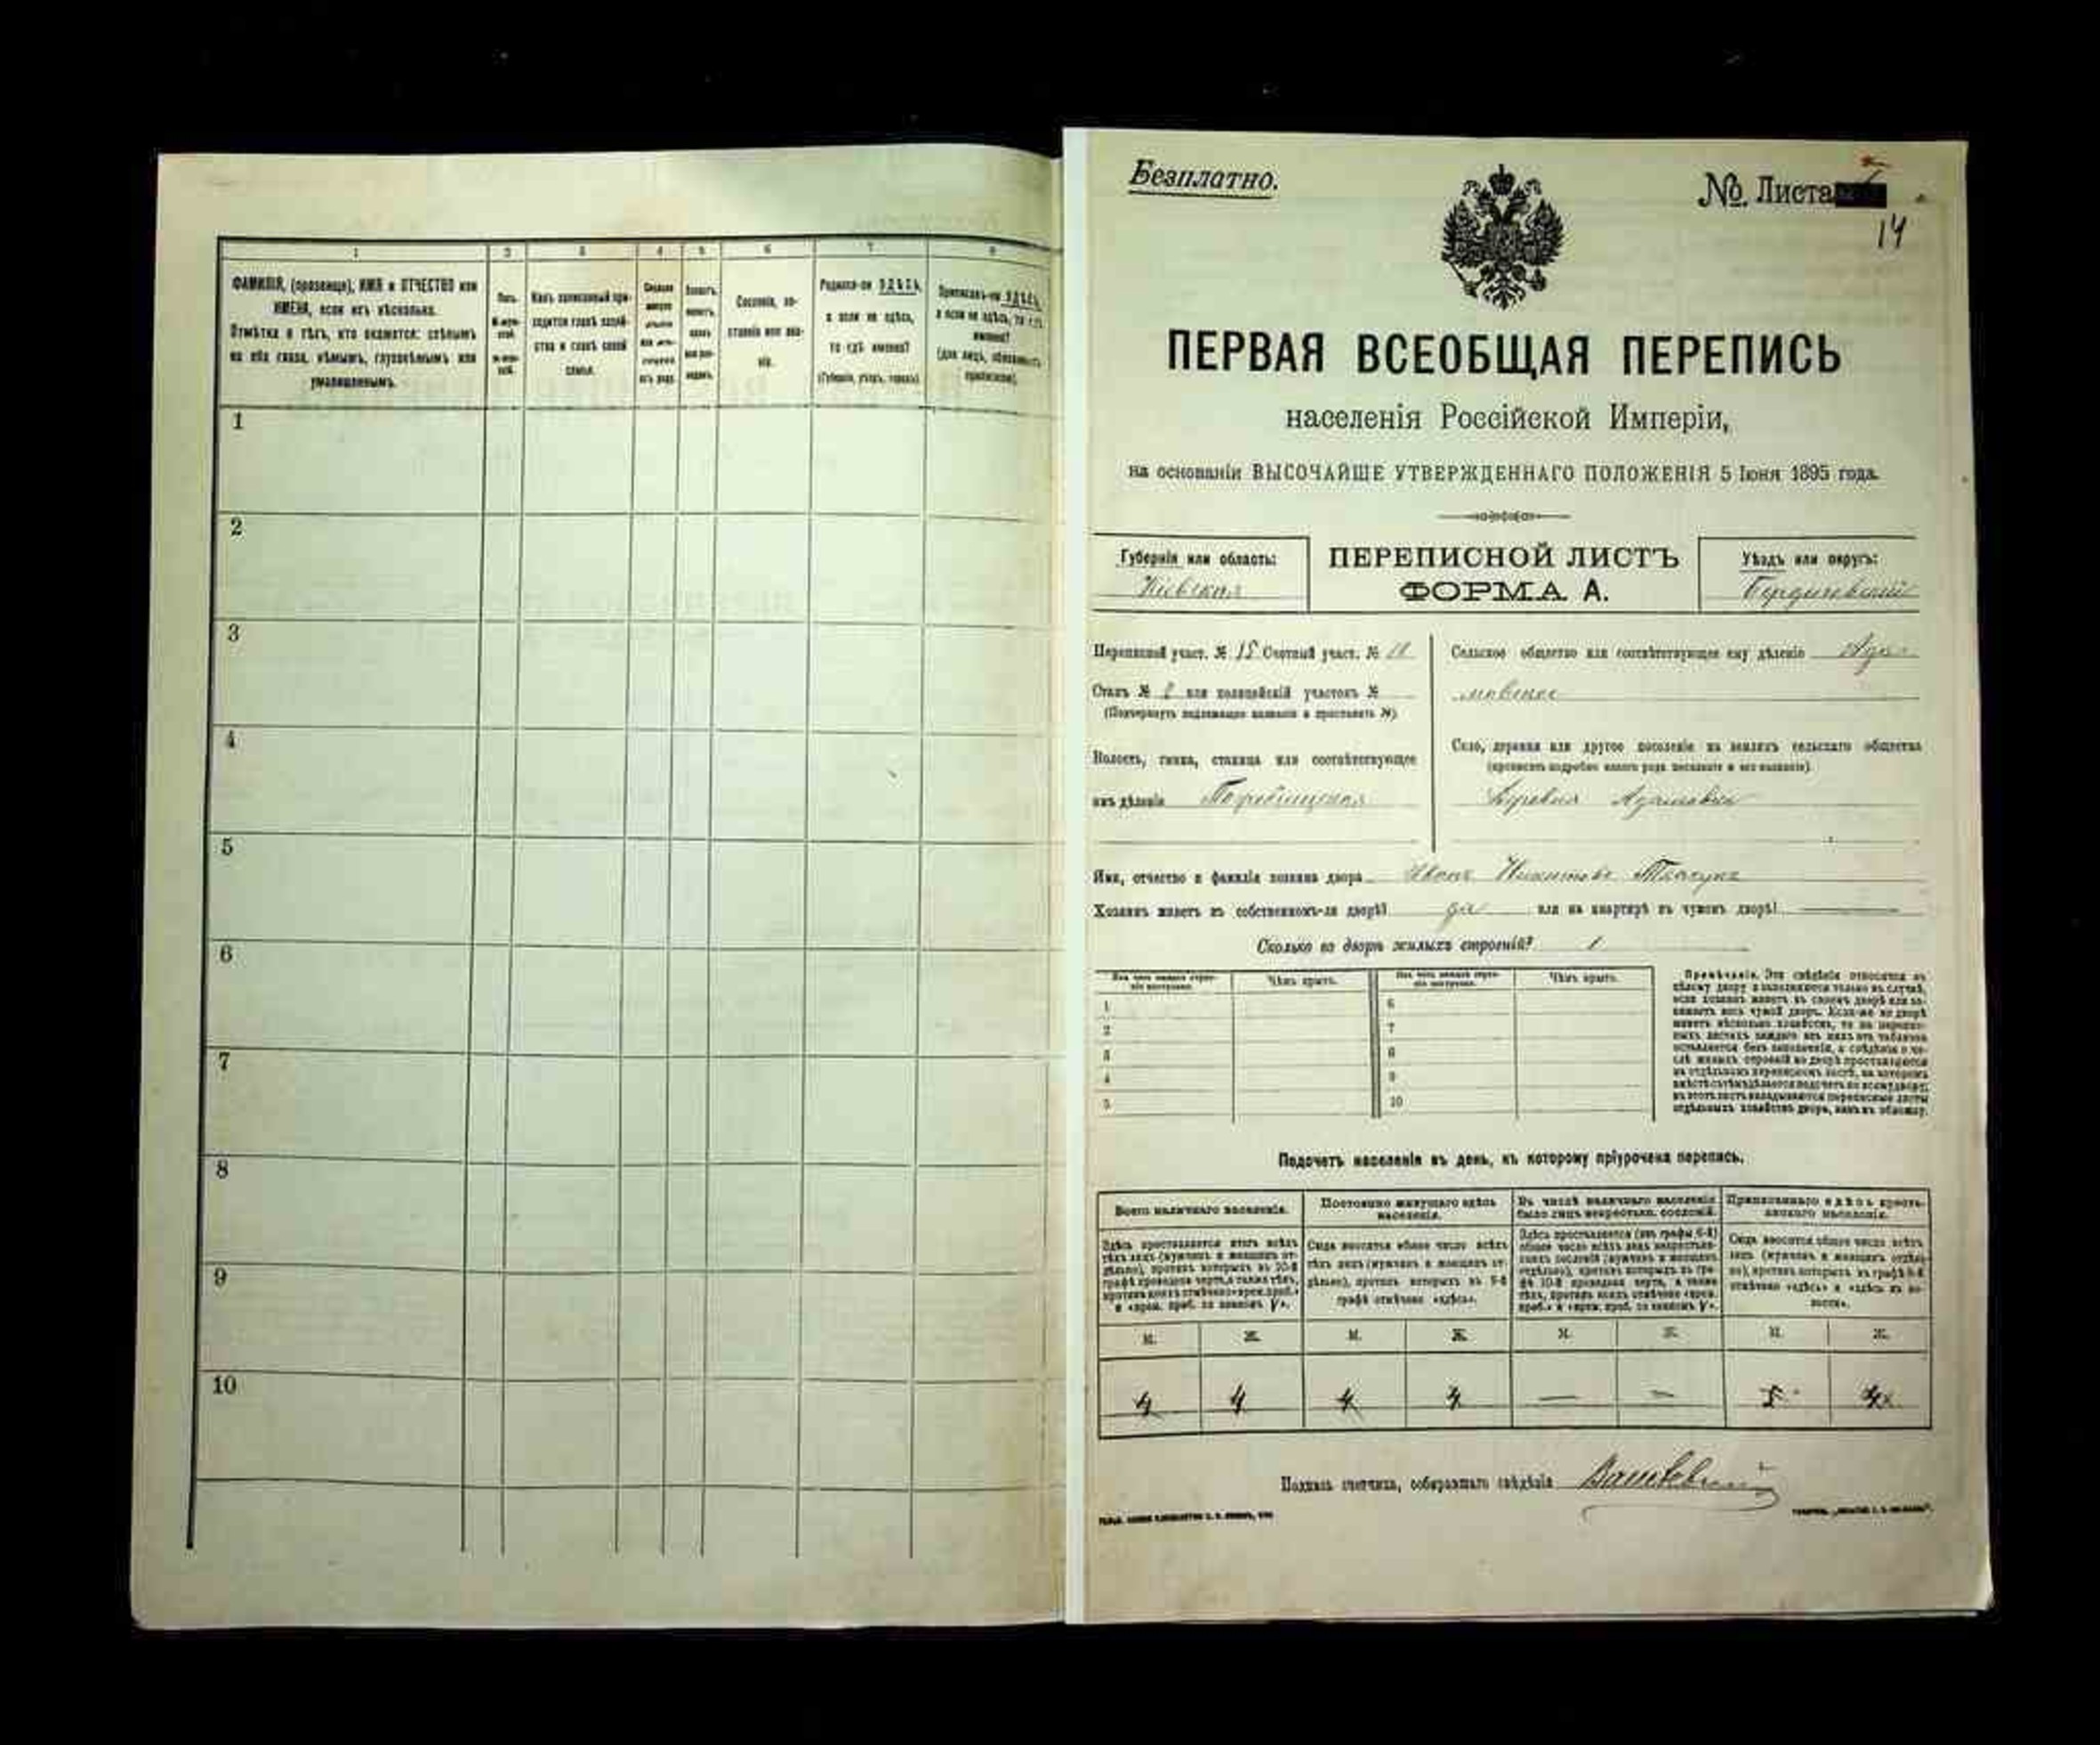 1 2 3 4 5 6 7 8
ФАМИЛІЯ, (прозвище), ИМЯ и ОТЧЕСТВО или
ИМЕНА, если ихъ нѣсколько.
Отмѣтка о тѣхъ, кто окажется: слѣпымъ
на оба глаза, нѣмымъ, глухонѣмымъ или
умалишеннымъ.
Полъ.
Какъ записанный при-
ходится главѣ хозяй-
ства и главѣ своей
семьи.
Сословіе, со-
стояніе или зва-
ніе.
Родился-ли ЗДѢСЬ,
а если не здѣсь,
то гдѣ именно?
(Губернія, уѣздъ, городъ).
Приписанъ-ли ЗДѢСЬ,
а если не здѣсь, то гдѣ
именно?
(для лицъ, обязанныхъ
припискою).
1
2
3
4
5
6
7
8
9
10
Безплатно.
№ Листа
14
ПЕРВАЯ ВСЕОБЩАЯ ПЕРЕПИСЬ
населенія Россійской Имперіи,
на основаніи ВЫСОЧАЙШЕ УТВЕРЖДЕННАГО ПОЛОЖЕНІЯ 5 Іюня 1895 года.
Губернія или область:
Кіевская
ПЕРЕПИСНОЙ ЛИСТЪ
ФОРМА А.
Уѣздъ или округъ:
Бердичевскій
Переписной участ. № 15 Счетный участ. №
Станъ № 2 или полицейскій участокъ №
(Подчеркнуть надлежащее названіе и проставить №)
Волость, гмина, станица или соотвѣтствующее
имъ дѣленіе
Сельское общество или соотвѣтствующее ему дѣленіе Ада-
мовское
Село, деревня или другое поселеніе на земляхъ сельскаго общества
(прописать подробно какого рода поселеніе и его названіе).
Деревня Адамовка
Имя, отчество и фамилія хозяина двора Иванъ Никитовъ
Хозяинъ живетъ въ собственномъ-ли дворѣ? да или на квартирѣ въ чужомъ дворѣ?
Сколько во дворѣ жилыхъ строеній? 1
Изъ чего жилыя строе-
нія построены. Чѣмъ крыто. Изъ чего жилыя строе-
нія построены. Чѣмъ крыто.
1 6
2 7
3 8
4 9
5 10
Примѣчаніе. Эти свѣдѣнія относятся къ
цѣлому двору и заполняются только въ случаѣ,
если хозяинъ живетъ въ своемъ дворѣ или за-
нимаетъ весь чужой дворъ. Если-же во дворѣ
живетъ нѣсколько хозяйствъ, то на перепис-
ныхъ листахъ каждаго изъ нихъ эта таблица
оставляется безъ заполненія, а свѣдѣнія о чи-
слѣ жилыхъ строеній во дворѣ проставляются
на отдѣльномъ переписномъ листѣ, на которомъ
вмѣстѣ съ тѣмъ дѣлается подсчетъ по всему двору;
въ этотъ листъ вкладываются переписные листы
отдѣльныхъ хозяйствъ двора, какъ въ обложку.
Подсчетъ населенія въ день, къ которому пріурочена перепись.
Всего наличнаго населенія.
Постоянно живущаго здѣсь
населенія.
Въ числѣ наличнаго населенія
было лицъ некрестьян. сословій.
Приписаннаго здѣсь кресть-
янскаго населенія.
Здѣсь проставляется итогъ всѣхъ
тѣхъ лицъ (мужчинъ и женщинъ от-
дѣльно), противъ которыхъ въ 10-й
графѣ проведена черта, а также тѣхъ,
противъ коихъ отмѣчено «врем. преб.»
Сюда вносится общее число всѣхъ
тѣхъ лицъ (мужчинъ и женщинъ от-
дѣльно), противъ которыхъ въ 9-й
графѣ отмѣчено «здѣсь».
Здѣсь проставляется (изъ графы 6-й)
общее число всѣхъ лицъ некрестьян-
скихъ сословій (мужчинъ и женщинъ
отдѣльно), противъ которыхъ въ гра-
фѣ 10-й проведена черта, а также
тѣхъ, противъ коихъ отмѣчено «врем.
Сюда вносится общее число всѣхъ
лицъ (мужчинъ и женщинъ отдѣль-
но), противъ которыхъ въ графѣ 8-й
отмѣчено «здѣсь» и «здѣсь въ во-
лости».
М. Ж. М. Ж. М. Ж. М. Ж.
4 4 4 4 — — 5 4
Подпись счетчика, собиравшаго свѣдѣнія